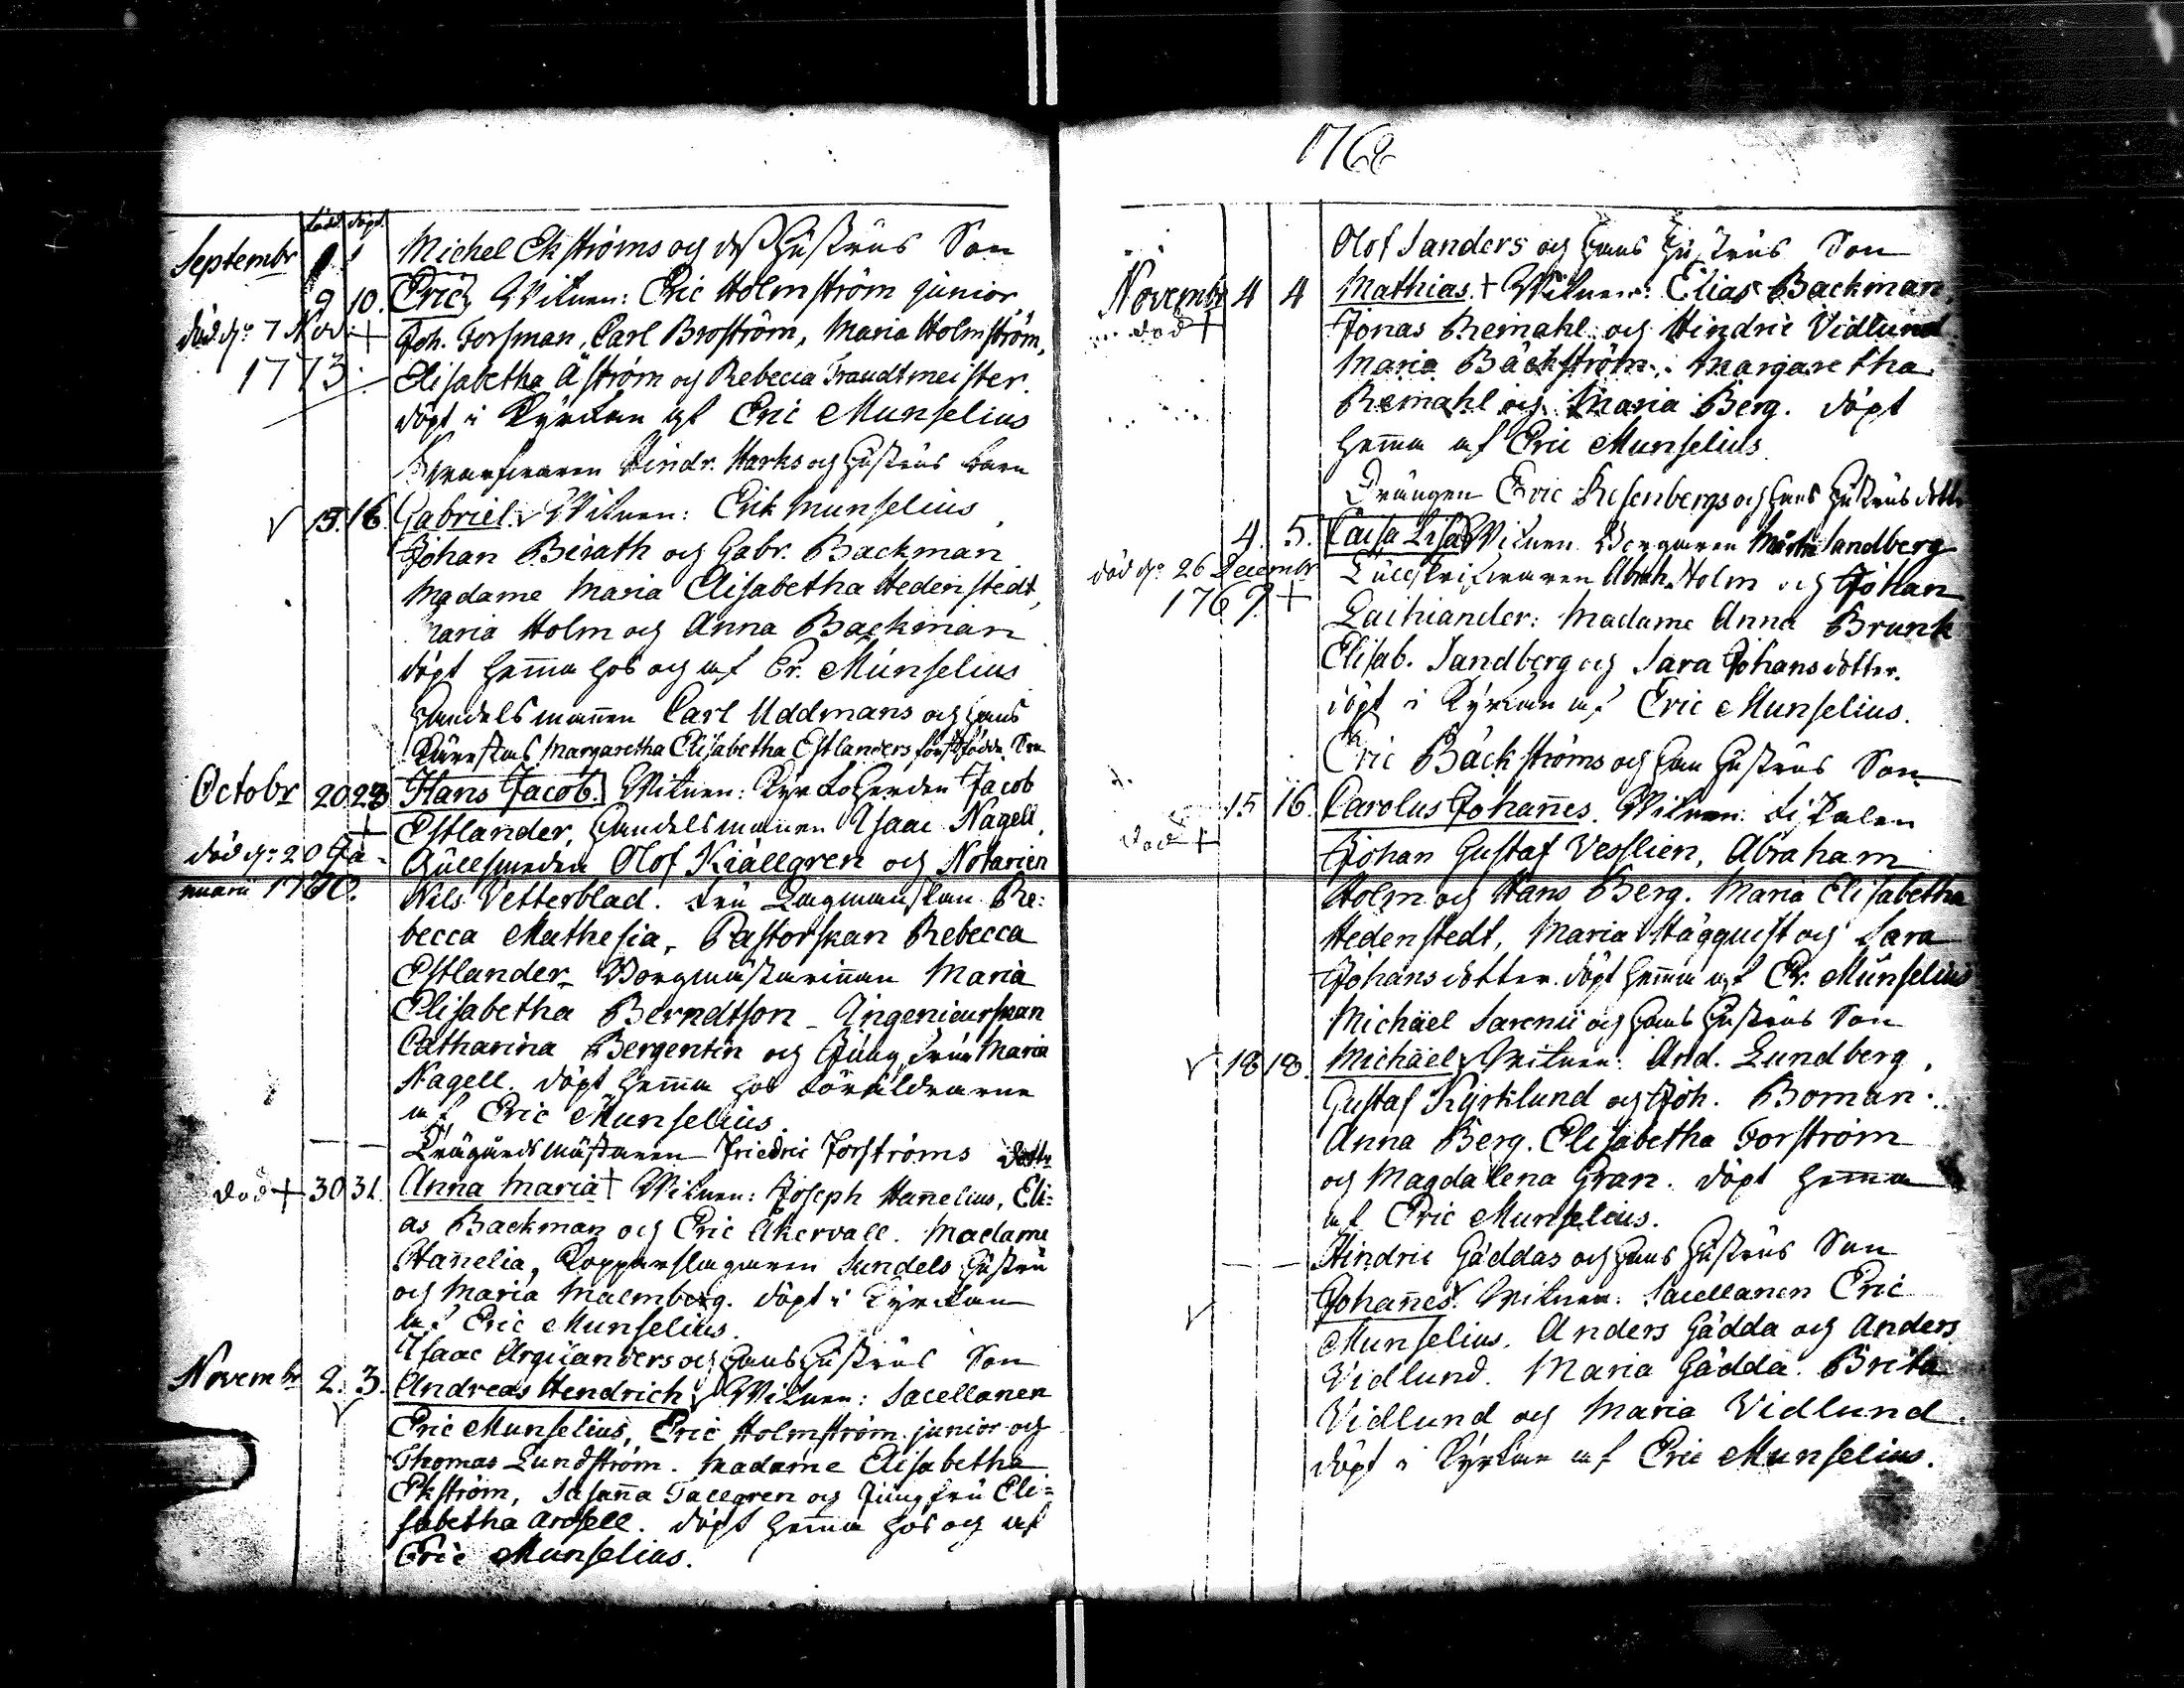 född döpt
Septembr 1 Michel Ekströms och dess Hustrus Son
9 10. Eric, Witnen: Eric Holmström junior
död d. 7 Nov. + Joh. Forsman, Carl Broström, Maria Holmström,
1773. Elisabetha Åström och Rebecca Traudtmeister.
döpt i Kyrckan af Eric Munselius
Hindr. Harks och Hustrus barn
15. 16. Gabriel. Witnen: Erik Munselius,
Johan Beirath och Gabr. Backman
Madame Maria Elisabetha Hedenstedt,
Maria Holm och Anna Backman
döpt hema hos och af Er. Munselius
Handelsmannen Carl Uddmans och hans
Kärestas Margaretha Elisabetha Estlanders förstfödda Son
Octobr 20 28 Hans Jacob. Witnen: KyrkoHerden Jacob
+ Estlander, Handelsmannen Isaac Nagell,
död d. 20 Ja- Gullsmeden Olof Kiällgren och Notarien
nuarii 1760. Nils Vetterblad. Fru Lagmanskan Re:
becca Mathesia, Pastorskan Rebecca
Estlander, Borgmästarinnan Maria
Elisabetha Berndtson, Ingenieurskan
Catharina Bergentin och Jungfrun Maria
Nagell. döpt hema hos Föräldrarne
af Eric Munselius.
Trägårdsmästaren Friedric Forströms dotter
död + 30 31. Anna Maria + Witnen: Joseph Hanelius, Eli:
as Backman och Eric Akervall. Madame
Hanelia, Kopparslagaren Sundels Hustru
och Maria Malmberg. döpt i Kyrckan
af Eric Munselius.
Isaac Argilanders och hans Hustrus Son
Novembr 2. 3. Andreas Hendrich, Witnen: Sacellanen
Eric Munselius, Eric Holmström junior och
Thomas Lundström. Madame Elisabetha
Ekström, Susanna Tallgren och Jungfru Eli=
sabetha Arosell. döpt hema hos och af
Eric Munselius.
1768
Olof Sanders och hans Hustrus Son
Novembr 4 4 Mathias. + Witnen: Elias Backman,
död + Jonas Reinahl och Hindric Vidlund
Maria Bäckström, Margaretha
Reinahl och Maria Berg. döpt
hema af Eric Munselius.
Drängen Eric Risenbergs och hans Hustrus dotter
4. 5. Caisa Lisa Witnen Borgaren Mårten Sandberg
död d. 26 Decembr Abrah. Holm och Johan
1767 + Lachiander: Madame Anna Brunk
Elisab. Sandberg och Sara Johansdotter.
döpt i Kyrkan af Eric Munselius.
Eric Bäckströms och hans Hustrus Son
15 16. Carolus Johannes. Witnen: Fiskalen
död + Johan Gustaf Vesslien, Abraham
Holm och Hans Berg. Maria Elisabetha
Hedenstedt, Maria Hägquist och Sara
Johansdotter. döpt hema af Er. Munselius
Michäel Sarenii och hans Hustrus Son
18 18. Michäel, Witnen: And. Lundberg,
Gustaf Kyrklund och Joh. Boman.
Anna Berg. Elisabetha Forström
och Magdalena Gran. döpt hema
af Eric Munselius.
Hindric Gäddas och hans Hustrus Son
Johannes. Witnen: Sacellanen Eric
Munselius. Anders Gädda och Anders
Vidlund. Maria Gädda. Brita
Vidlund och Maria Vidlund.
döpt i Kyrkan af Eric Munselius.